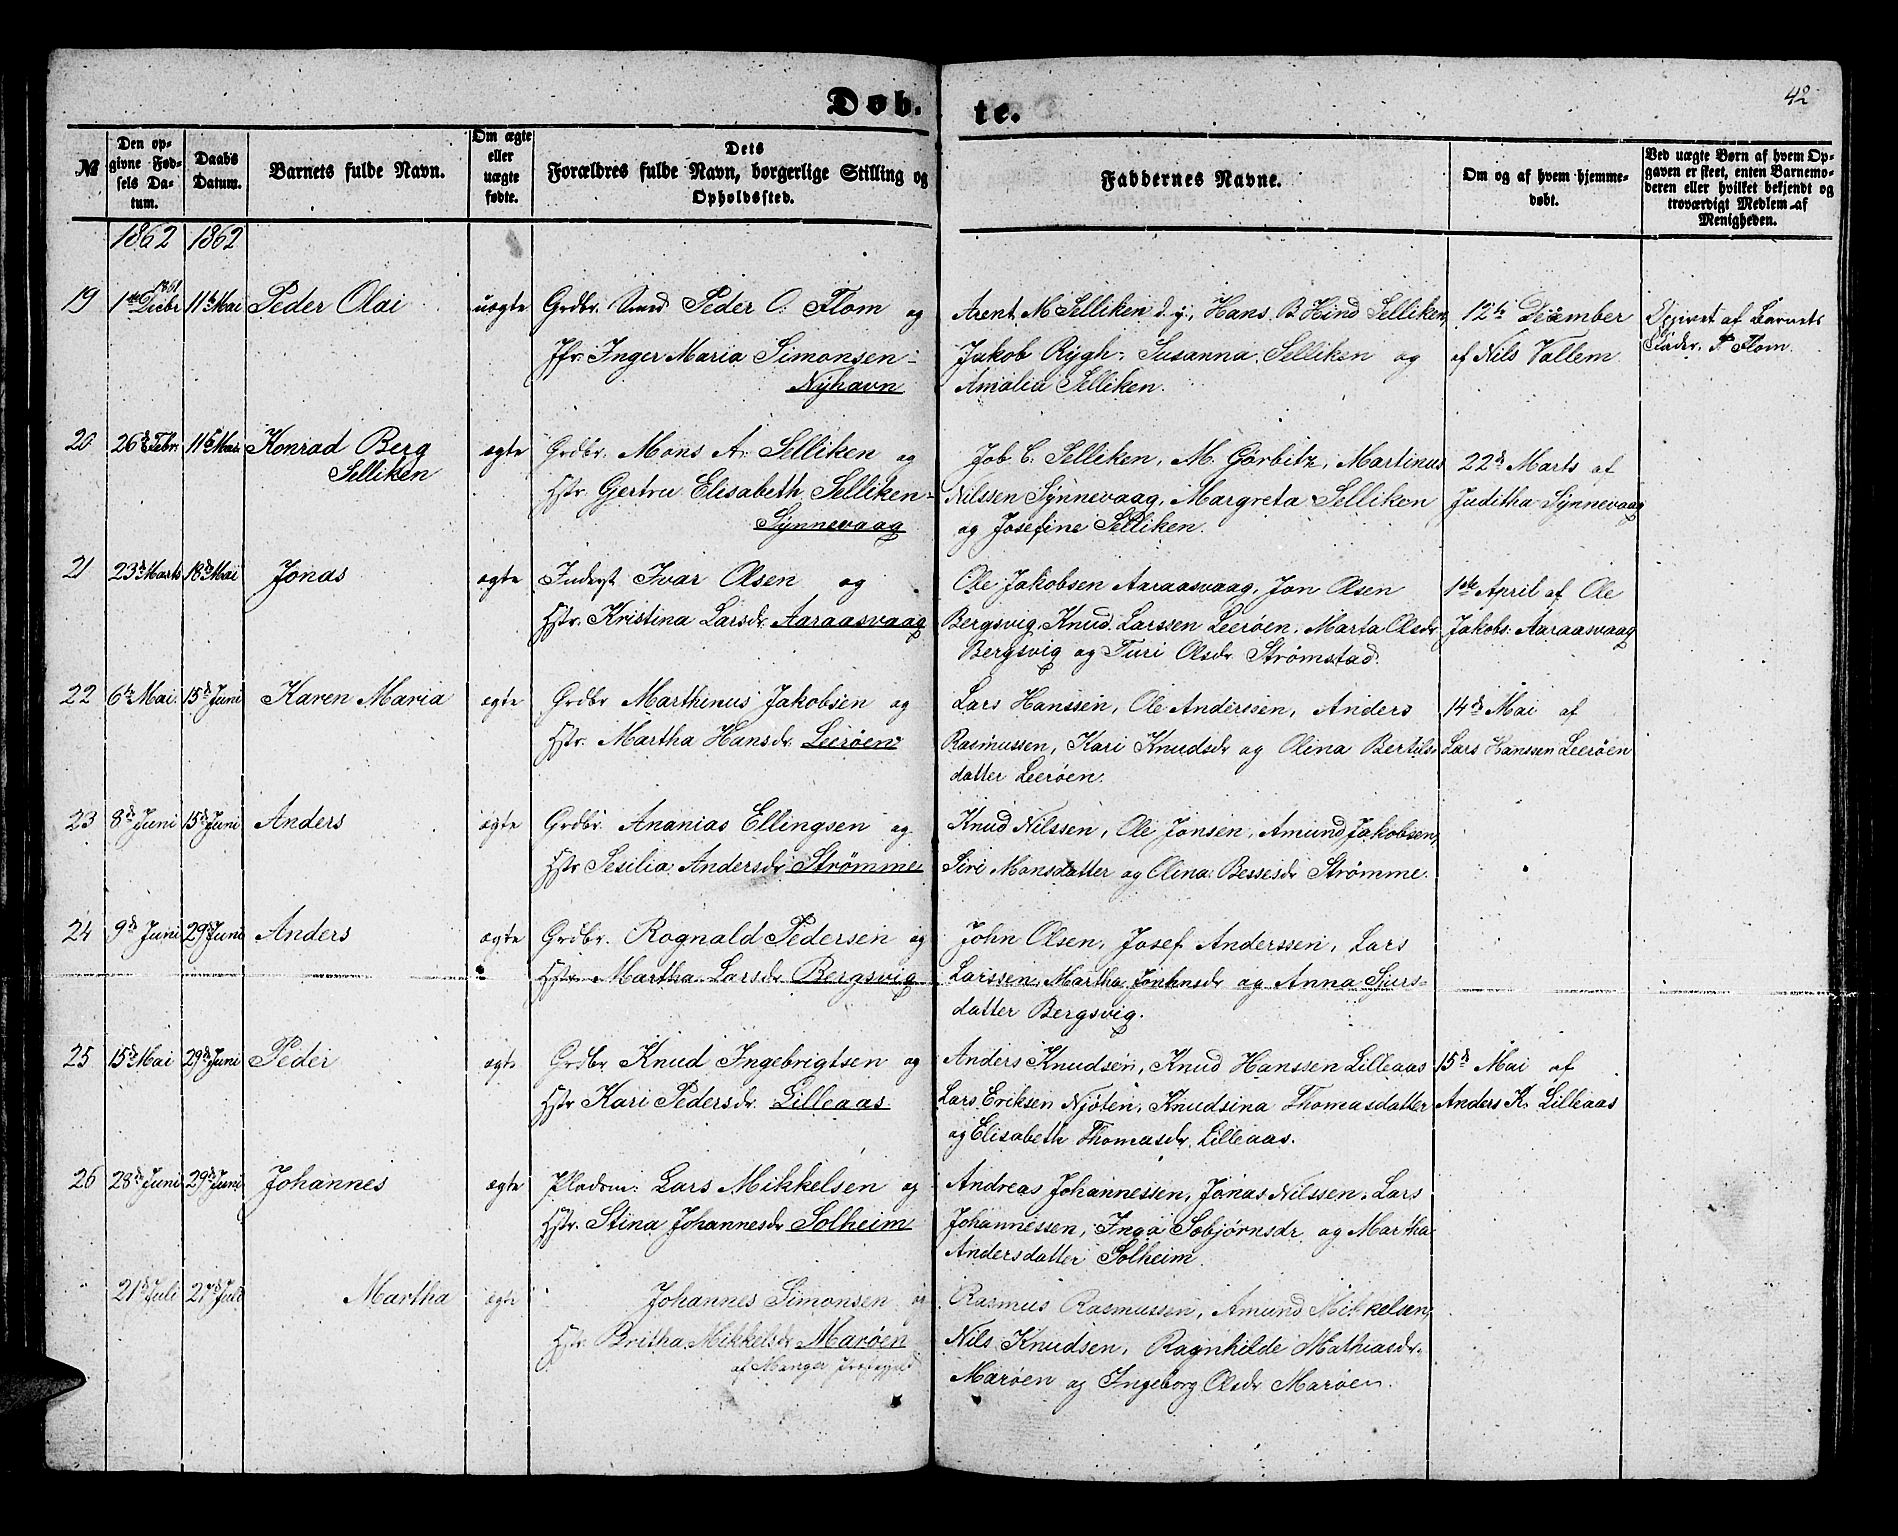 Døb. te. 42
№ Den opgivne Fødsels Datum. Daabs Datum. Barnets fulde Navn. Om ægte eller uægte fødte. Dets Forældres fulde Navn, borgerlige Stilling og Opholdssted. Faddernes Navne. Om og af hvem hjemmedøbt. Ved uægte Børn af hvem Opgaven er skeet, enten Barnemoderen eller hvilket bekjendt og troværdigt Medlem af Menigheden.
1862 1862
19 1ste Decbr 1861 11te Mai Peder Olai uægte Grdbr. Smed Peder O. Flom og Arent M Selliken d. y., Hans B Hind Selliken, 12te December Opgivet af Barnets
Jfr. Inger Maria Simonsen- Jakob Rygh, Susanna Selliken og af Nils Vallem Fader, P Flom.
Nyhavn Amalia Selliken.
20 26de Febr. 11te Mai Konrad Berg ægte Grdbr. Mons A. Selliken og Job C. Selliken, M. Görbitz, Martinus 22de Marts af
Selliken Hstr. Gjertru Elisabeth Selliken- Nilssen Synnevaag, Margreta Selliken Juditha Synnevaag
Synnevaag og Josefine Selliken.
21 23de Marts 18de Mai Jonas ægte Inderst Ivar Olsen og Ole Jakobsen Aaraasvaag, Jon Olsen 1ste April af Ole
Hstr. Kristina Larsdr. Aaraasvaag Bergsvig, Knud Larssen Leerøen, Marta Olsdr Jakobs. Aaraasvaag
Bergsvig og Turi Olsdr Strømstad.
22 6te Mai. 15de Juni Karen Maria ægte Grdbr Marthinus Jakobsen og Lars Hanssen, Ole Anderssen, Anders 14de Mai af
Hstr. Martha Hansdr. Leerøen Rasmussen, Kari Knudsdr og Olina Bertils- Lars Hanssen Leerøen
datter Leerøen.
23 8de Juni 15de Juni Anders ægte Grdbr. Ananias Ellingsen og Knud Nilssen, Ole Jonsen, Amund Jakobsen,
Hstr Sesilia Andersdr Strømme Siri Monsdatter og Olina Bessesdr Strømme.
24 9de Juni 29de Juni Anders ægte Grdbr. Rognald Pedersen og John Olsen, Josef Anderssen, Lars
Hstr Martha Larsdr Bergsvig Larssen, Martha Johnsdr og Anna Sjurs-
datter Bergsvig.
25 15de Mai 29de Juni Peder ægte Grdbr Knud Ingebrigtsen og Anders Knudsen, Knud Hanssen Lilleaas 15de Mai af
Hstr Kari Pedersdr. Lilleaas Lars Eriksen Njøten, Knudsina Thomasdatter Anders K. Lilleaas
og Elisabeth Thomasdr. Lilleaas.
26 28de Juni 29de Juni Johannes ægte Pladsm: Lars Mikkelsen og Andreas Johannessen, Jonas Nilssen, Lars
Hstr. Stina Johannesdr Solheim Johannessen, Inga Sobjørnsdr og Martha
Andersdatter Solheim.
21de Juli 27de Juli Martha ægte Johannes Simonsen og Rasmus Rasmussen, Amund Mikkelsen,
Hstr. Britha Mikkelsdr Marøen Nils Knudsen, Ragnhilde Mathiasdr.
af Manger Præstegjeld Marøen og Ingeborg Olsdr Marøen.